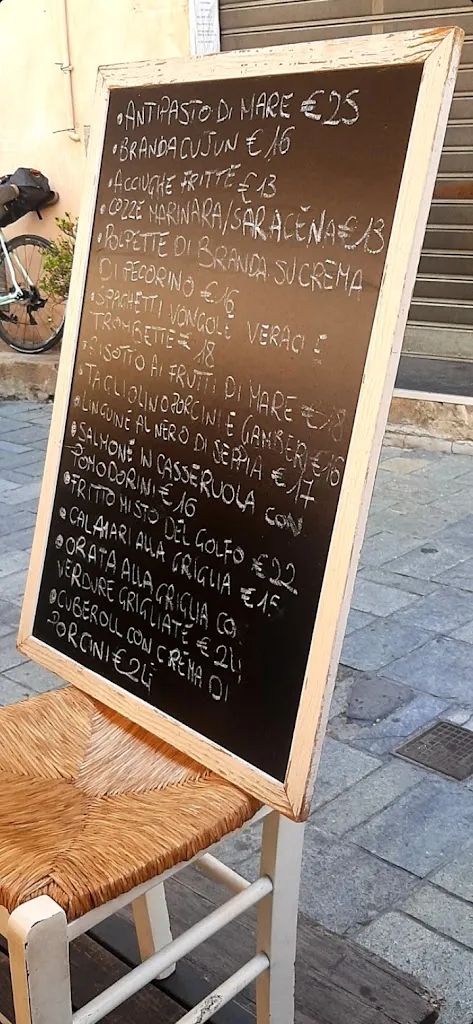 • ANTIPASTO DI MARE €25
• BRANDACUJUN €16
• ACCIUGHE FRITTE €13
• COZZE MARINARA/SARACENA €13
• POLPETTE DI BRANDA SU CREMA
DI PECORINO €16
• SPAGHETTI VONGOLE VERACI E
TROMBETTE € 18
• RISOTTO AI FRUTTI DI MARE €18
• TAGLIOLINO PORCINI E GAMBERI €16
• LINGUINE AL NERO DI SEPPIA €17
• SALMONE IN CASSERUOLA CON
POMODORINI €16
• FRITTO MISTO DEL GOLFO €22
• CALAMARI ALLA GRIGLIA €15
• ORATA ALLA GRIGLIA CO
VERDURE GRIGLIATE €24
• CUBEROLL CON CREMA DI
PORCINI €24